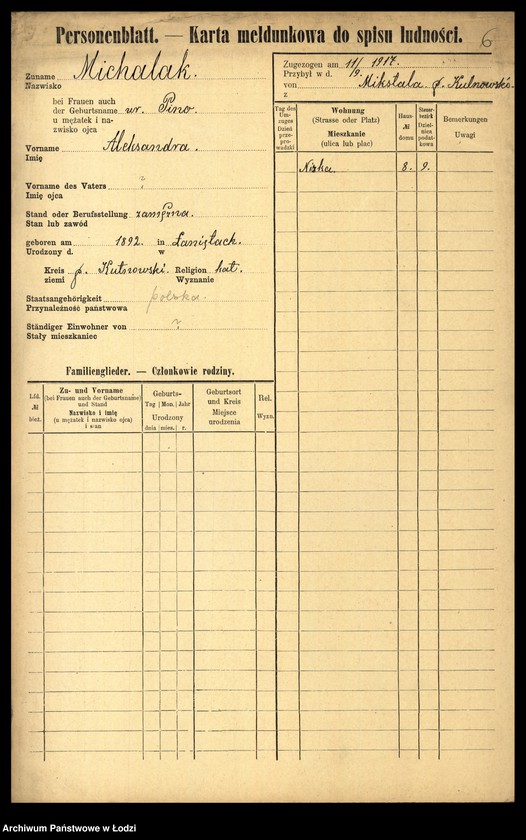 Personenblatt. — Karta meldunkowa do spisu ludności.
6
Zuname Michalak.
Nazwisko
bei Frauen auch
der Geburtsname ur. Pino.
u mężatek i na-
zwisko ojca
Vorname Aleksandra.
Imię
Vorname des Vaters ?
Imię ojca
Stand oder Berufsstellung zamężna.
Stan lub zawód
geboren am 1892. in Łaniętach.
Urodzony d. w
Kreis p. Kutnowski. Religion kat.
ziemi Wyznanie
Staatsangehörigkeit polska.
Przynależność państwowa
Ständiger Einwohner von ?
Stały mieszkaniec
Familienglieder. — Członkowie rodziny.
Lfd. № bież.
Zu- und Vorname
(bei Frauen auch der Geburtsname)
und Stand
Nazwisko i imię
(u mężatek i nazwisko ojca)
i stan
Geburts-
Tag Mon. Jahr
Urodzony
dnia mies. r.
Geburtsort
und Kreis
Miejsce
urodzenia
Rel.
Wyzn.
Zugezogen am 11/9. 1917.
Przybył w d.
von Mikstala p. Kutnowsk.
z
Tag des
Um-
zuges
Dzień
prze-
prowadzki
Wohnung
(Strasse oder Platz)
Mieszkanie
(ulica lub plac)
Haus-
№
domu
Steuer-
bezirk
Dziel-
nica
podat-
kowa
Bemerkungen
Uwagi
Nizka. 8. 9.
Archiwum Państwowe w Łodzi